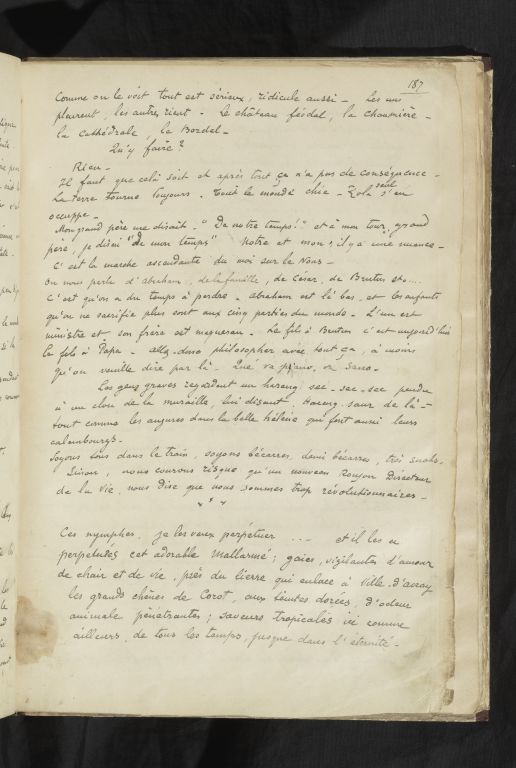 187
Comme on le voit tout est sérieux, ridicule aussi - Les uns
pleurent, les autres rient - Le château féodal, la chaumière -
la Cathédrale, le Bordel -
Qu'y faire?
Rien -
Il faut que cela soit et après tout ça n'a pas de conséquence -
La terre tourne toujours - Tout le monde chie - Zola seul s'en
occuppe -
Mon grand père me disait - "De notre temps!" et à mon tour, grand
père, je disai "de mon temps" Notre et mon, il y a une nuance -
C'est la marche ascendante du moi sur le Nous -
On nous parle d'abraham, de la famille, de César, de Brutus etc....
C'est qu'on a du temps à perdre - abraham est là bas - et les enfants
qu'on ne sacrifie plus sont aux cinq parties du monde - L'un est
ministre et son frère est maquereau - Le fils à Brutus c'est aujourd'hui
le fils à Papa - allez donc philosopher avec tout ça, à moins
qu'on veuille dire par là - Qué va piano, va sano -
Les gens graves regardent un hareng sec - sec - sec pendu
à un clou de la muraille, lui disant, Hareng saur de là -
tout comme les augures dans la belle hélène qui font aussi leurs
calembourgs -
Soyons tous, dans le train, soyons bécarres, demi bécarres, trés snobs.
Sinon, nous courons risque qu'un nouveau Roujon Directeur
de la Vie, nous dise que nous sommes trop révolutionnaires -
Ces nymphes, je les veux perpétuer ... - et il les a
perpetuées cet adorable Mallarmé; gaies, vigilantes d'amour
de chair et de vie, près du lierre qui enlace à Ville d'avray
les grands chênes de Corot, aux teintes dorées, d'odeur
animale pénétrantes; saveurs tropicales ici comme
ailleurs, de tous les temps, jusque dans l'éternité -